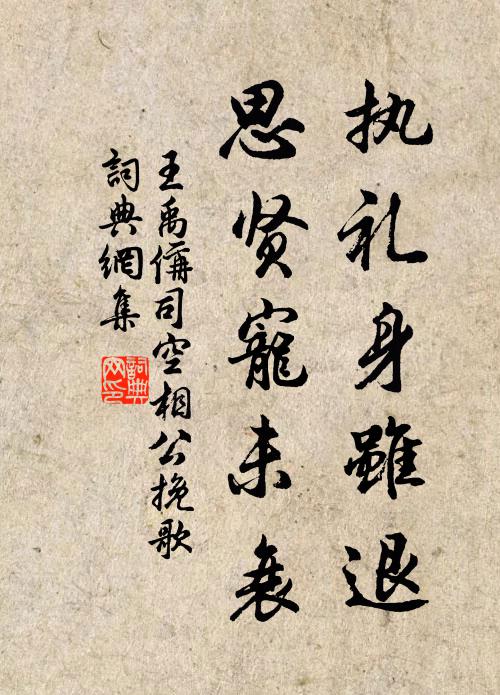 执礼身雖退
思贤寵未衰
王禹偁司空相公挽歌
詞典網集
詞典網印